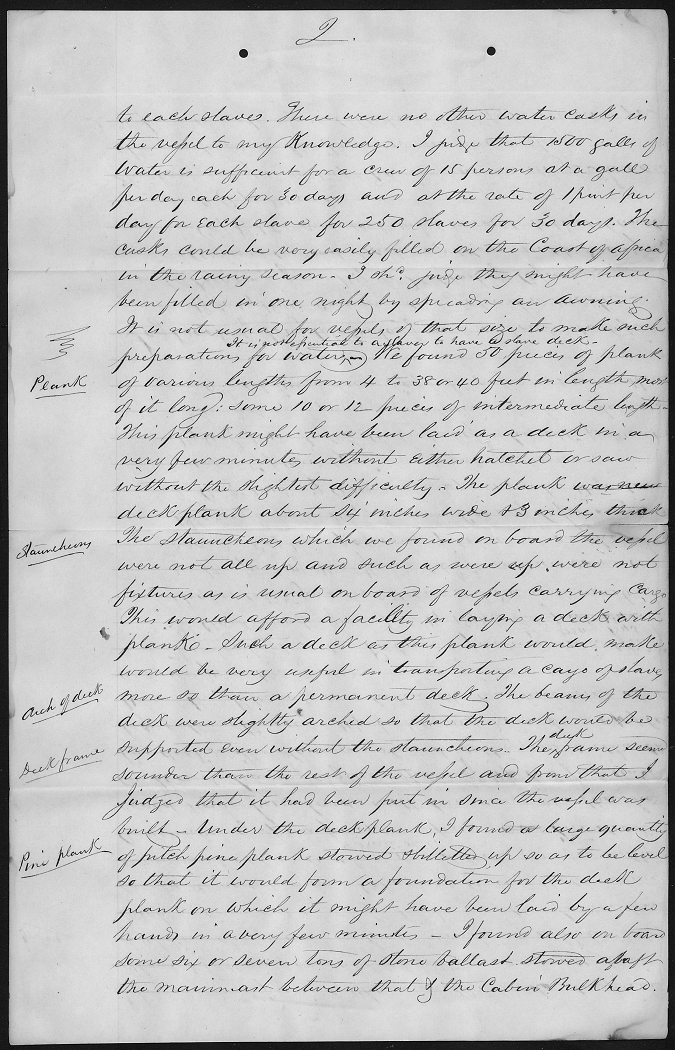 2.
to each slaves. There were no other water casks in
the vessel to my Knowledge. I judge that 1500 galls of
Water is sufficient for a crew of 15 persons at a gall
per day each for 30 days and at the rate of 1 pint per
day for each slave for 250 slaves for 30 days. The
casks could be very easily filled on the Coast of Africa
in the rainy season - I shd. judge they might have
been filled in one night by spreading an awning.
It is not usual for vessels of that size to make such
It is not essential to a slaver to have a slave deck -
preparations for water - We found 50 pieces of plank
Plank
of various lengths from 4 to 38 or 40 feet in length, most
of it long: some 10 or 12 pieces of intermediate length -
This plank might have been laid as a deck in a
very few minutes without either hatchet or saw
without the slightest difficulty - The plank was new
deck plank about six inches wide & 3 inches thick
Stauncheons
The stauncheons which we found on board the vessel
were not all up and such as were up were not
fixtures as is usual on board of vessels carrying Cargo
This would afford a facility in laying a deck with
plank - Such a deck as this plank would make
would be very useful in transporting a cargo of slaves
Arch of deck
more so than a permanent deck. The beams of the
deck were slightly arched so that the deck would be
supported even without the stauncheons. The deck frame seemed
Deck frame
sounder than the rest of the vessel and from that I
judged that it had been put in since the vessel was
built - Under the deck plank, I found a large quantity
Pine plank
of pitch pine plank stowed & billetted up so as to be level
so that it would form a foundation for the deck
plank on which it might have been laid by a few
hands in a very few minutes - I found also on board
some six or seven tons of stone ballast stowed abaft
the mainmast between that & the Cabin Bulkhead.